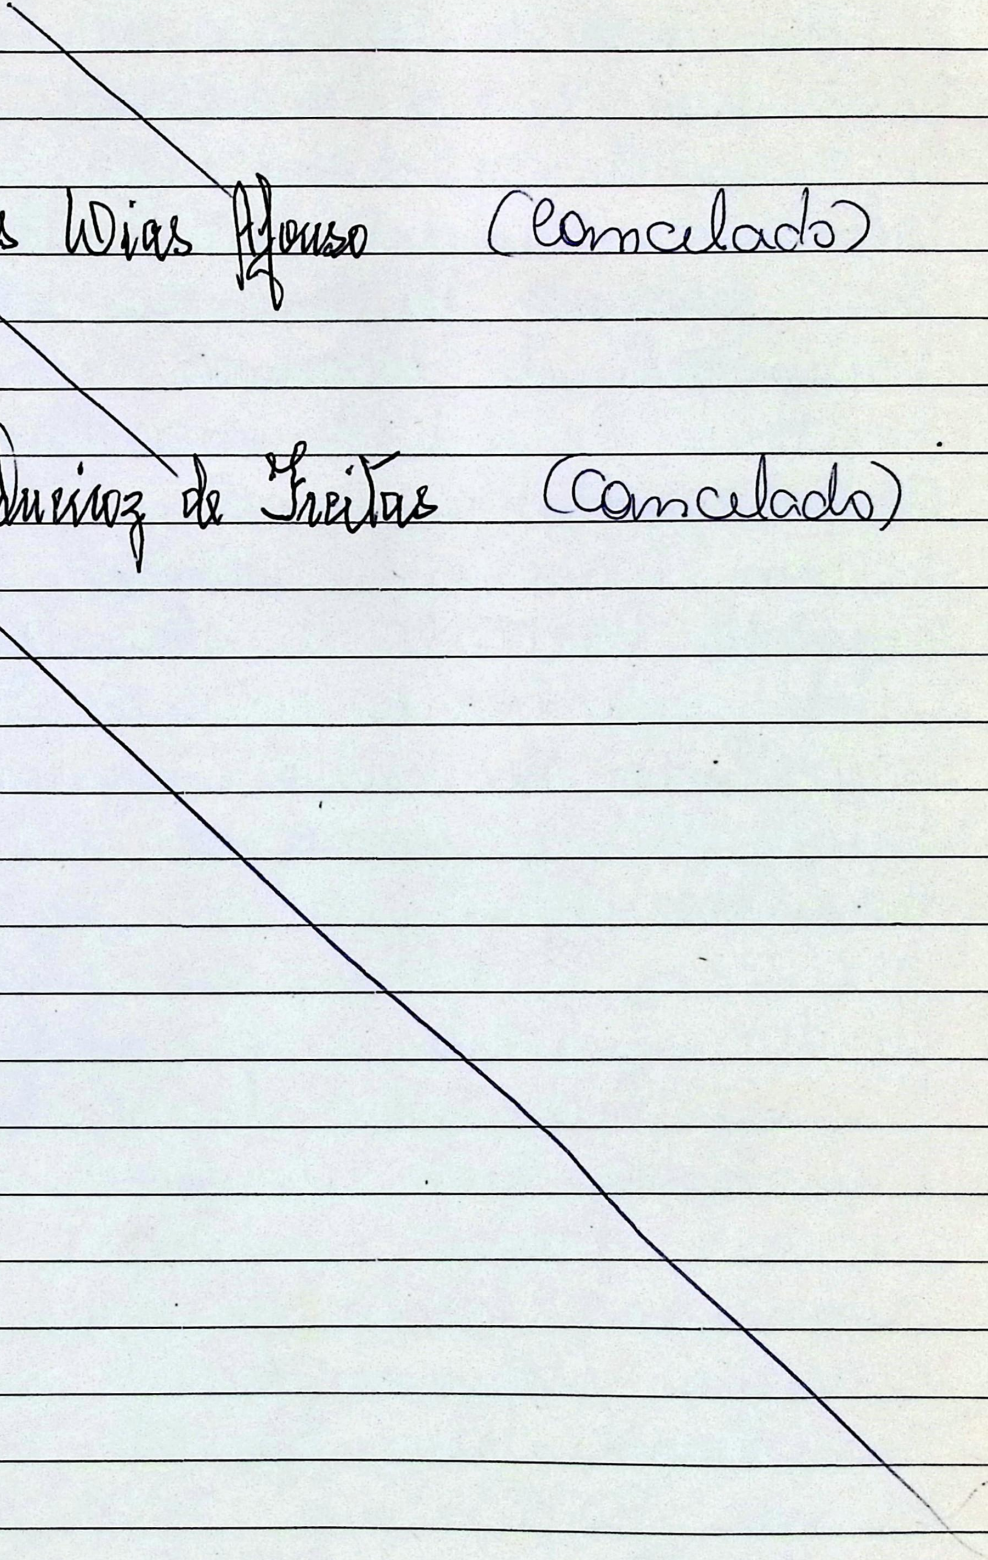 s Dias Afonso (Cancelado)
Queiroz de Freitas (Cancelado)